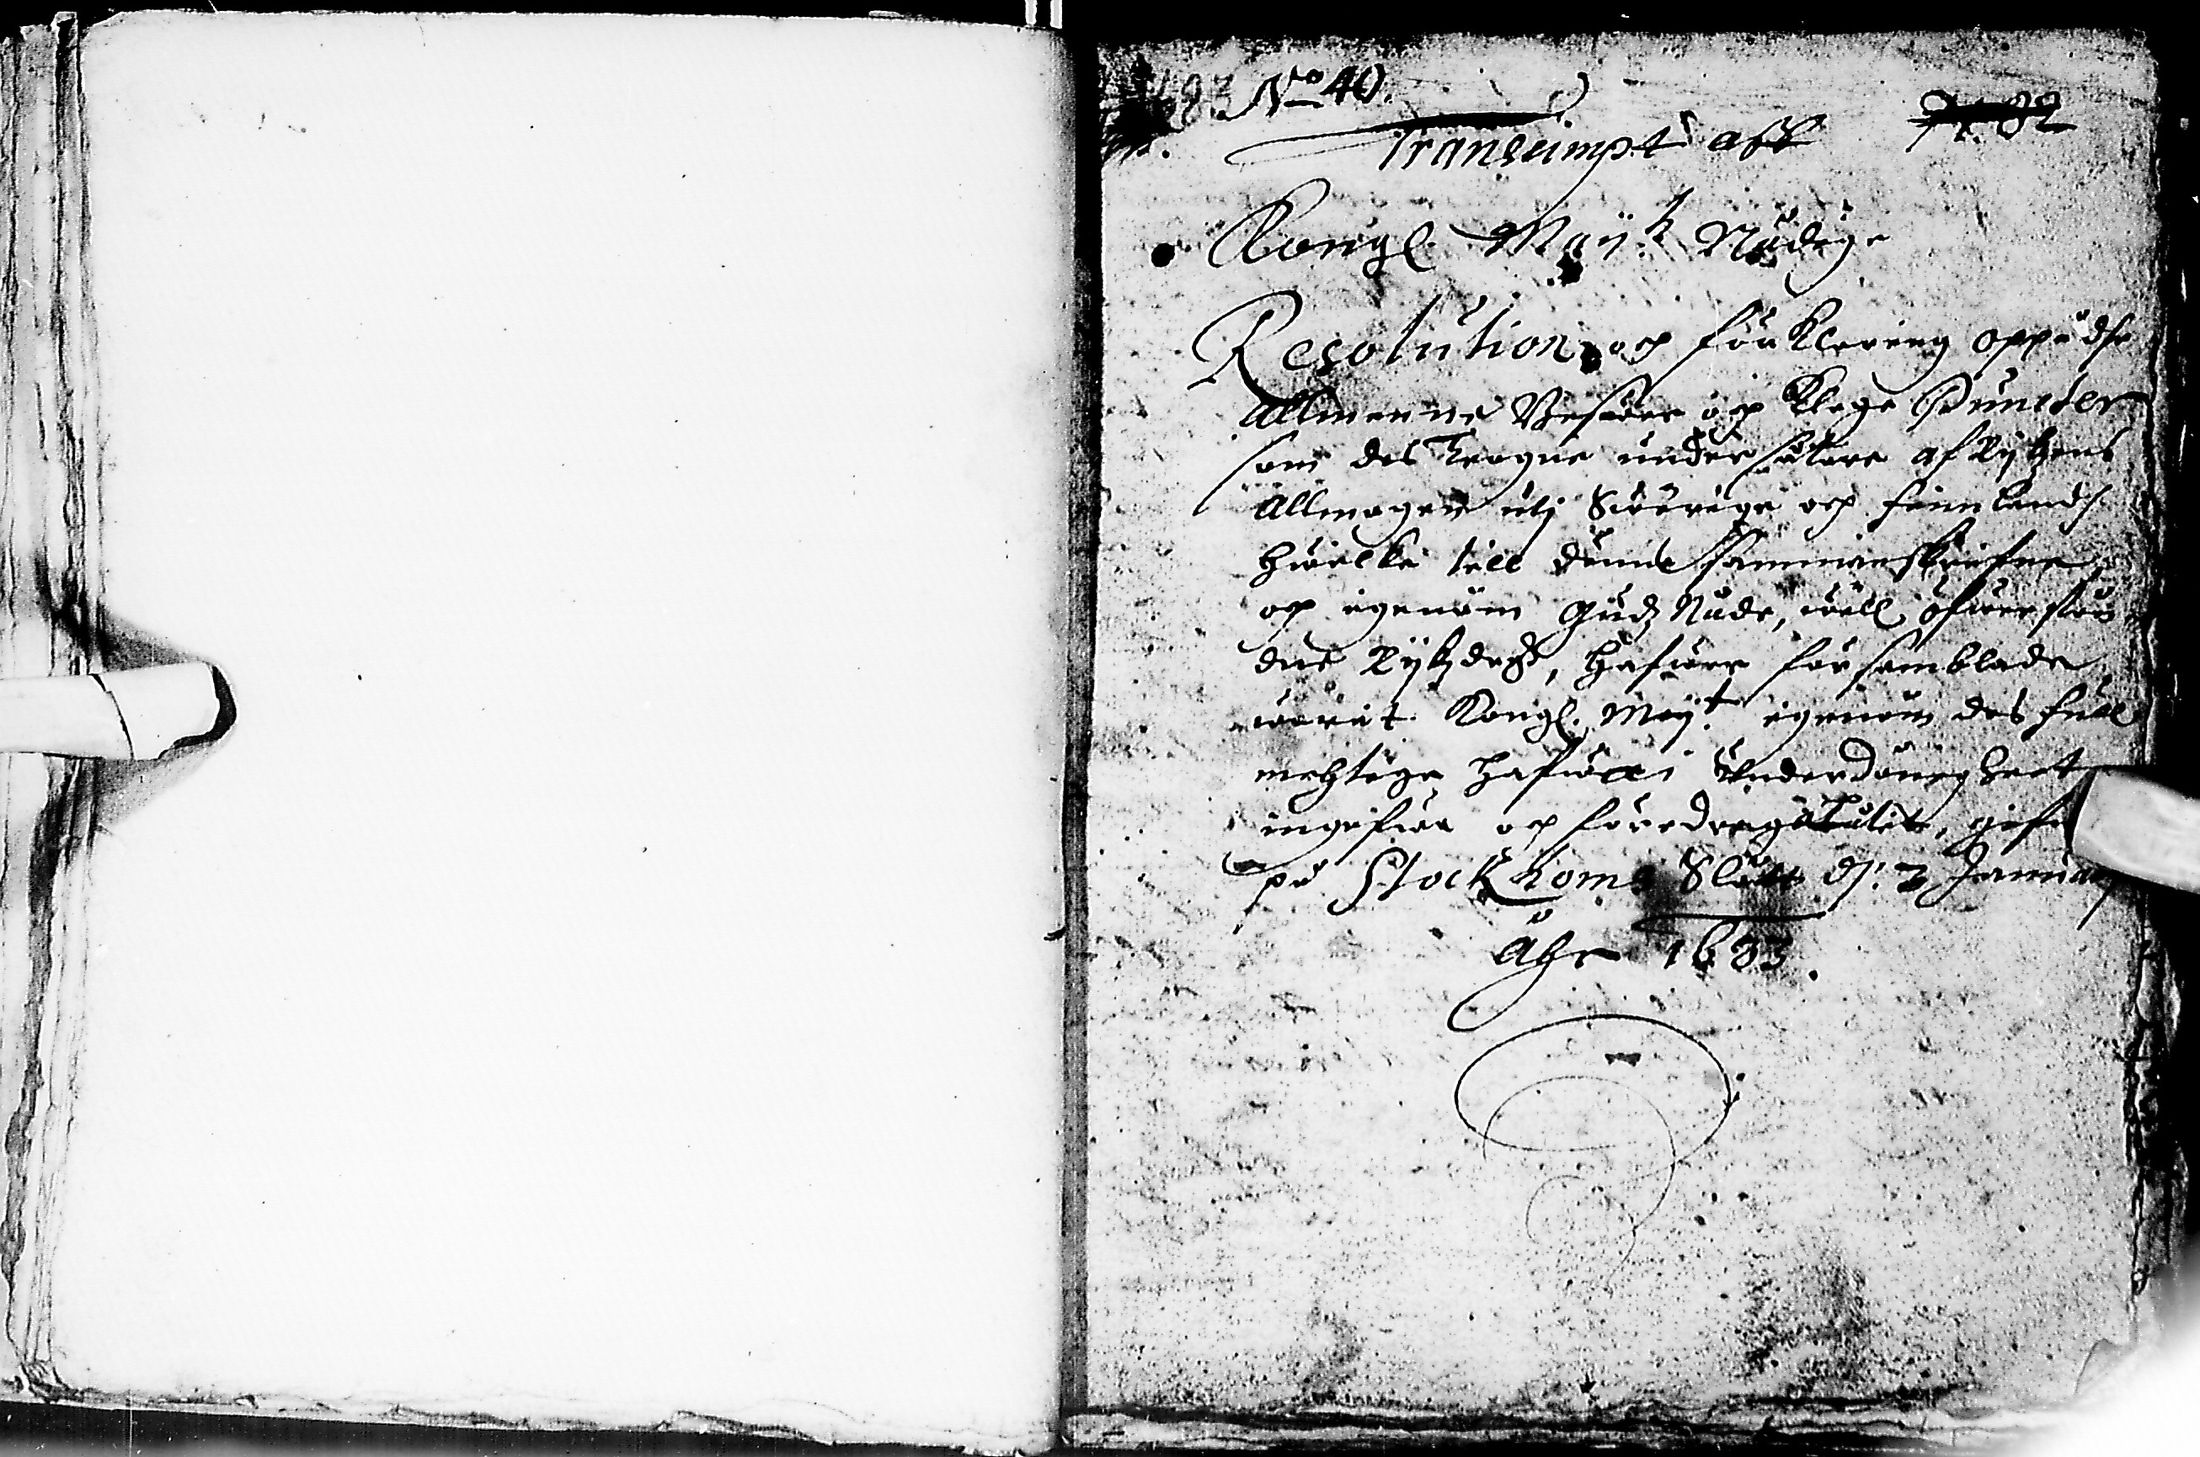 No 40.
Transumpt aff
Kongl. Maÿ:tz Nådige
Resolution och förklaring oppå dhe
Allmenne Besvär och Klage Puncter
som des Trogne undersåtare af Rijkzens
Allmogen utj Swerige och Finnland
hwilke till denne sammanskrefne
och igenom Gudz Nåde, wäll öfwerstån
dne Rijkzdagh, hafwer församblade
warit Kongl. Maÿ:t igenom des full
mechtige hafwer i Underdånigheet
ingifwa och föredraga låtit, gifn
på Stockholms Slått d. 3 Januarij
Åhr 1683.